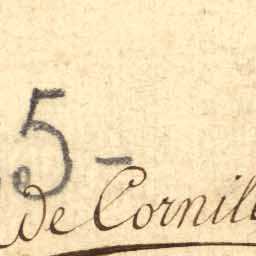 .5-
de Cornill